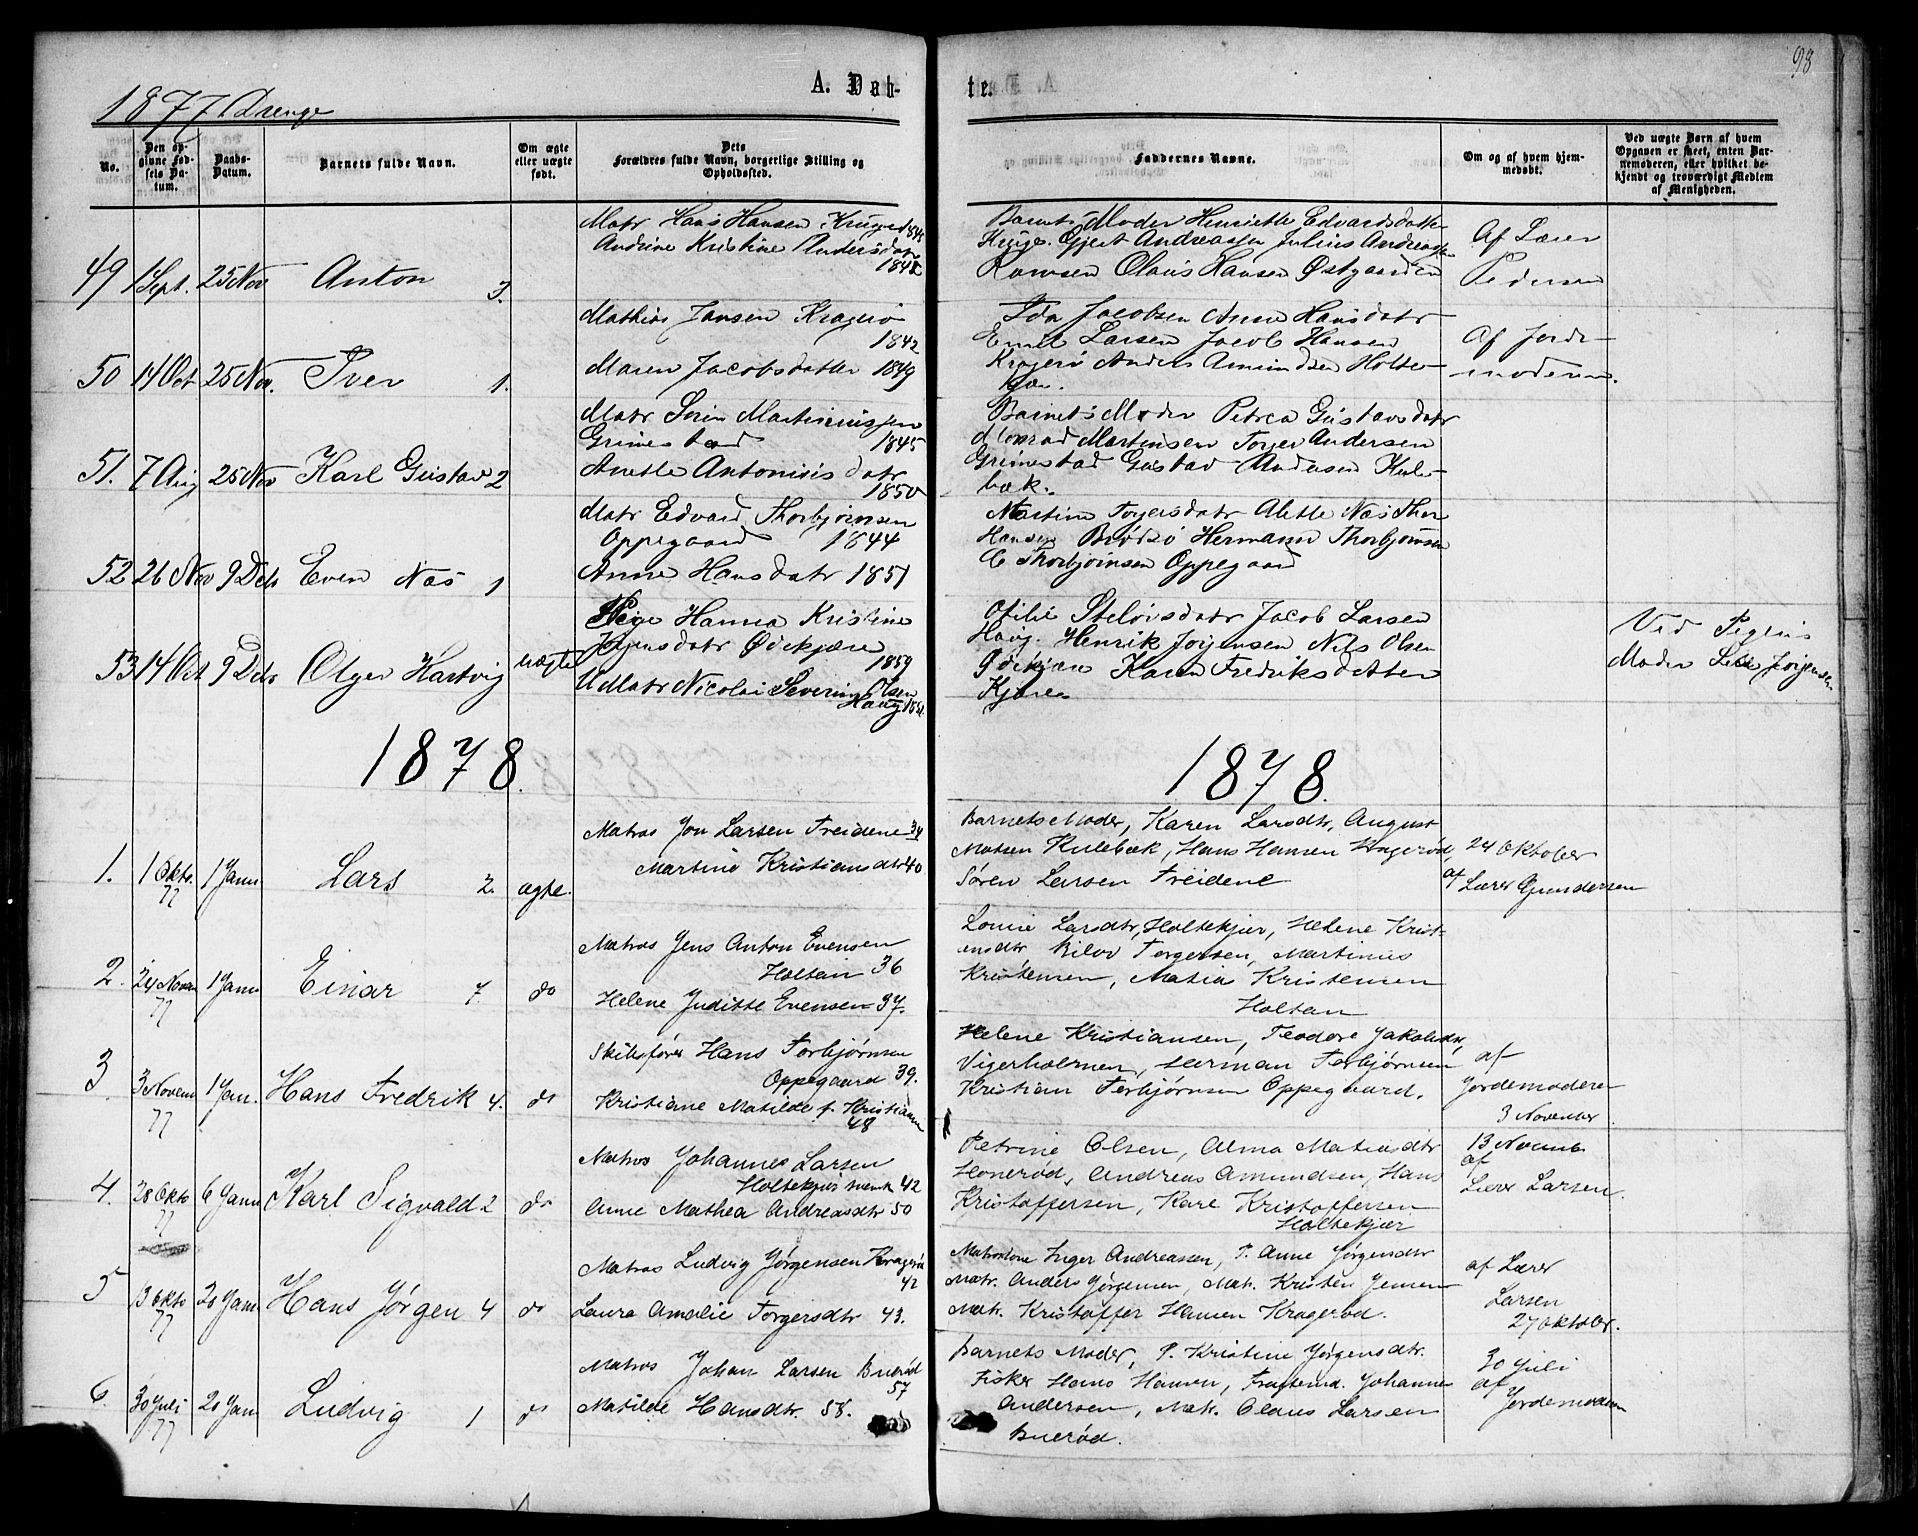 98
A. Døb-
te.
1877 Drenge
No.
Den op-
givne Fød-
sels Da-
tum.
Daabs-
Datum.
Barnets fulde Navn.
Om ægte
eller uægte
født.
Dets
Forældres fulde Navn, borgerlige Stilling og
Opholdssted.
Faddernes Navne.
Om og af hvem hjem-
medøbt.
Ved uægte Børn af hvem
Opgaven er skeet, enten Bar-
nemoderen, eller hvilket be-
kjendt og troværdigt Medlem
af Menigheden.
49 1 Sept. 25 Nov Anton 3.
Matr Hans Hansen
Andrine Kristine Andersdatr
1848
Barnets Moder Henriette Edvardsdatter
Gjert Andreassen Julius Andreassen
Olaus Hansen Østgaarden
Af Lærer
Pedersen
50 14 Oct 25 Nov. Iver 1.
Mathias Jansen Kragerø
1842
Maren Jacobsdatter 1849
Ida Jacobsen Anne Hansdatr
Emil Larsen Jacob Hansen
Kragerø Anders Amundsen Holte-
kjær.
Af Jorde-
moderen.
51. 7 Aug 25 Nov Karl Gustav 2
Matr Sørin Martiniussen
Grimestad 1845
Anette Antonisis datr
1850
Barnets Moder Petrea Gustavsdatr
Konrad Martinsen Torger Andersen
Grimestad Gustav Andersen Kule-
bæk.
52 26 Nov 9 Decb Even Næs 1
Matr Edvard Thorbjørnsen
Oppegaard 1844
Anne Hansdatr 1851
Martine Torgersdatr Alette Næs Thor
Hansen Brødsø Hermann Thorbjørnsen
C Thorbjørnsen Oppegaard
53 14 Oct 9 Decb Olger Hartvig uægte
Pige Hanna Kristine
Jørgensdatr Ødekjære
1859
U Matr Nicolai Severin Olsen
Haug
Otilie Jacob Larsen
Haug. Henrik Jørgensen Nils Olsen
Ødekjær Karen Fredriksdatter
Kjære
Ved Pigens
Moder Jørgensen
1878.
1878.
1. 1 Okto. 77 1 Janu. Lars 2. ægte.
Matros Jon Larsen Treidene 34
Martine Kristiansdtr 40
Barnets Moder, Karen Larsdtr, August
Matsen Kulebæk, Hans Hansen Wagerød,
Søren Larsen Treidene
24 Oktober
af Lærer Gundersen
2. 24 Novem 77 1 Janu Einar 7 do
Matros Jens Anton Evensen
Holtan 36
Helene Juditte Evensen 37.
Lovise Larsdtr, Holtekjær, Helene Krist-
ensdtr Bilov Torgersen, Martinus
Kristensen, Matia Kristensen
Holtan
3 3 Novem 77 1 Jan. Hans Fredrik 4. do
Skibsfører Hans Torbjørnsen
Oppegaard 39.
Kristiane Matilde f. Kristiansen
48
Helene Kristiansen, Teodore Jakobsdtr,
Vigerholmen, Herman Torbjørnsen
Kristian Torbjørnsen Oppegaard.
af
Jordemoderen
3 November
4. 28 Okto 77 6 Janu Karl Sigvald 2 do
Matros Johannes Larsen
Holtekjær 42
Anne Mathea Andreasdtr 50
Petrine Olsen, Alma Matiasdtr
Honerød, Andreas Amundsen, Hans
Kristoffersen, Kare Kristoffersen
Holtekjær
13 Novemb
af
Lærer Larsen.
5 13 Okto 77 20 Jan. Hans Jørgen 4 do
Matros Ludvig Jørgensen Kragerød
42
Laura Amalie Torgersdtr 43.
Matroskone Inger Andreassen, P. Anne Jørgensdtr
Matr. Anders Jørgensen, Mat. Kristen Jensen
Mat. Kristoffer Hansen Kragerød.
af Lærer
Larsen
27 Oktober.
6. 30 Juli 77 20 Jan Ludvig 1 do
Matros Johan Larsen Buerød
57
Matilde Hansdtr. 58.
Barnets Moder, P. Kristine Jørgensdtr.
Fisker Hans Hansen, Johannes
Andersen, Mat. Olaus Larsen
Buerød.
30 Juli
af
Jordemoderen